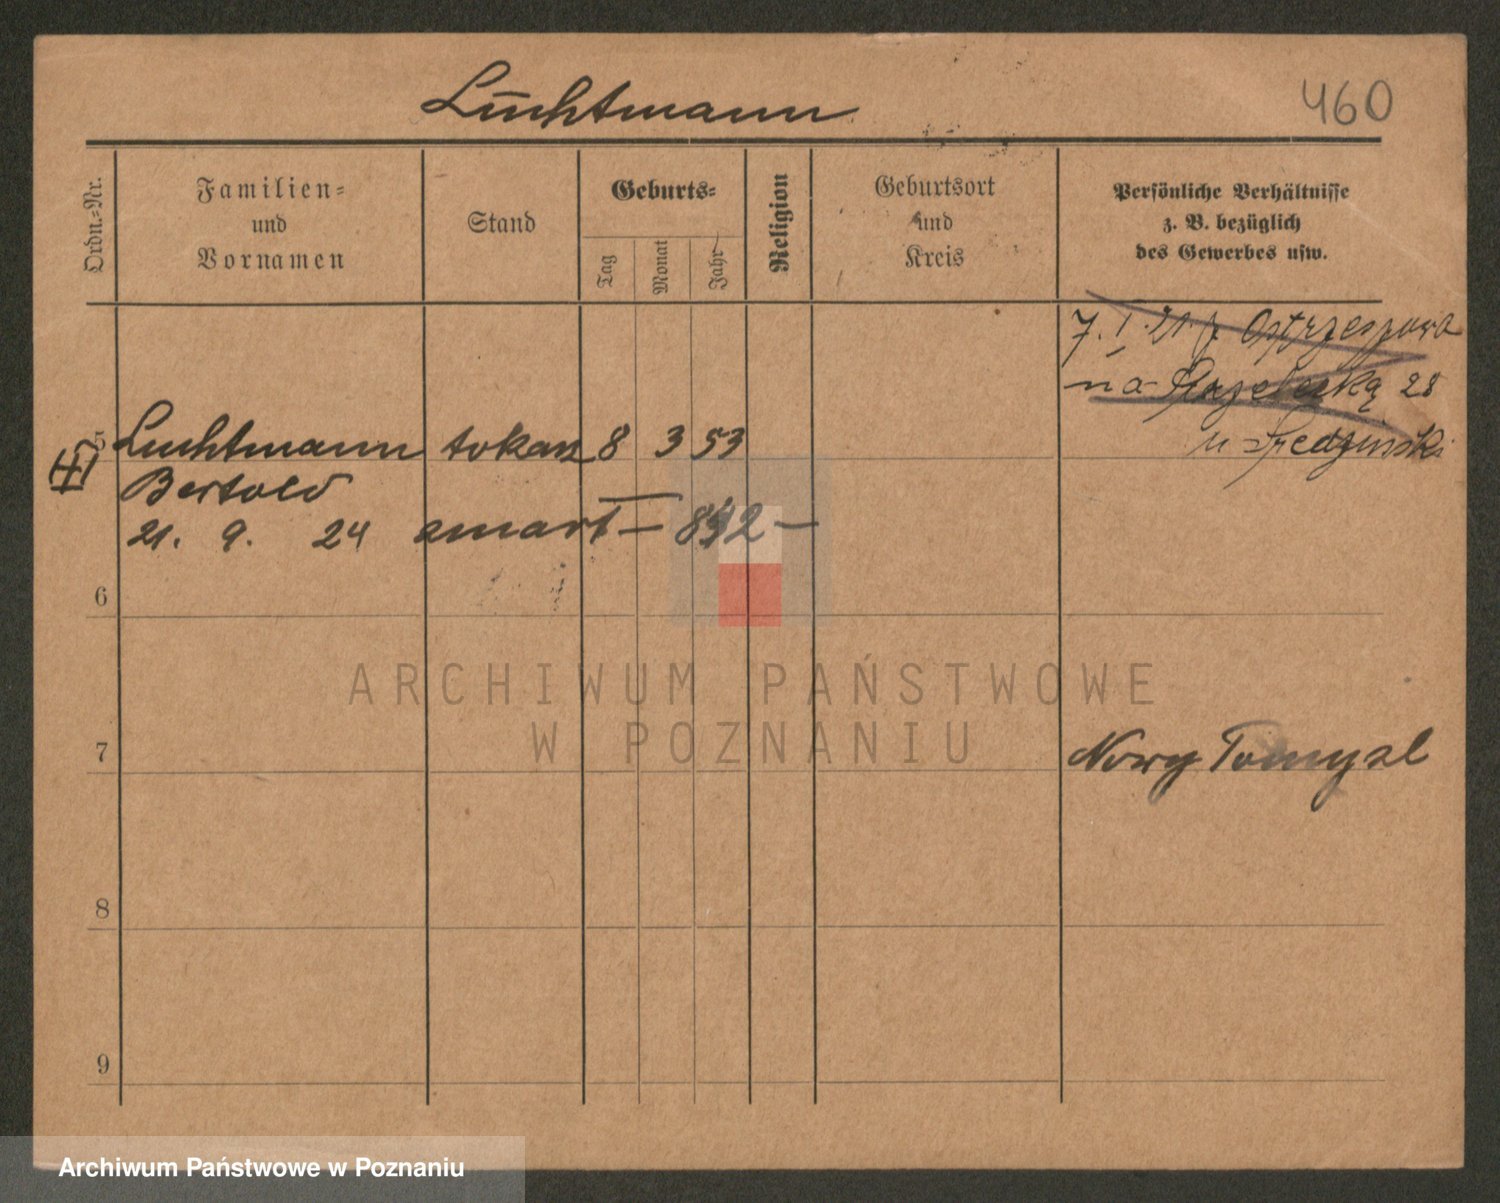 Luchtmann
460
Ordn.=Nr.
Familien=
und
Vornamen
Stand
Geburts=
Tag
Monat
Jahr
Religion
Geburtsort
und
Kreis
Persönliche Verhältnisse
z. B. bezüglich
des Gewerbes usw.
7. I. 21 z Ostrzeszowa
na Strzelecką 28
u
5 Luchtmann tokarz 8 3 53
Bertold
21. 9. 24 zmarł — 892 —
6
7 Nowy Tomyśl
8
9
ARCHIWUM PAŃSTWOWE
W POZNANIU
Archiwum Państwowe w Poznaniu